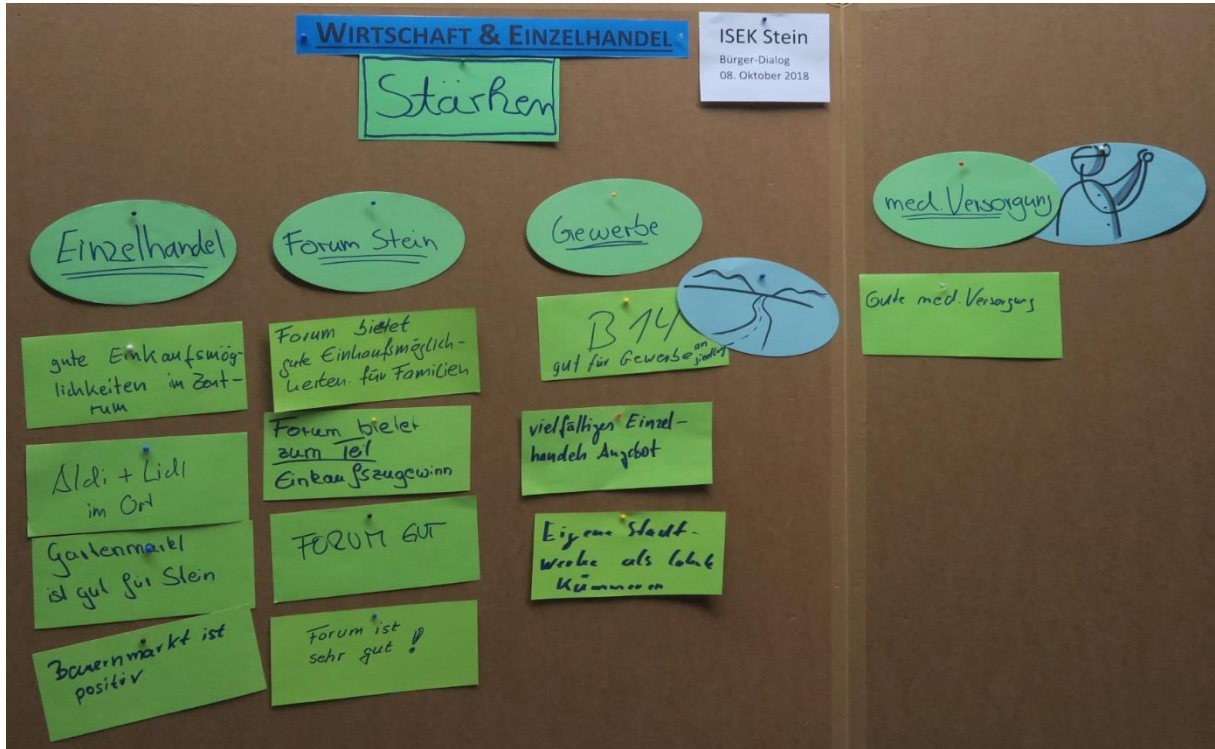 WIRTSCHAFT & EINZELHANDEL
ISEK Stein
Bürger-Dialog
08. Oktober 2018
Stärken
Einzelhandel
gute Einkaufsmög-
lichkeiten im Zent-
rum
Aldi + Lidl
im Ort
Gartenmarkt
ist gut für Stein
Bauernmarkt ist
positiv
Forum Stein
Forum bietet
gute Einkaufsmöglich-
keiten für Familien
Forum bietet
zum Teil
Einkaufszugewinn
FORUM GUT
Forum ist
sehr gut!
Gewerbe
B 14
gut für Gewerbean
siedlung
vielfältiges Einzel-
handels Angebot
Eigene Stadt-
werke als lokale
Kümmerer
med. Versorgung
Gute med. Versorgung